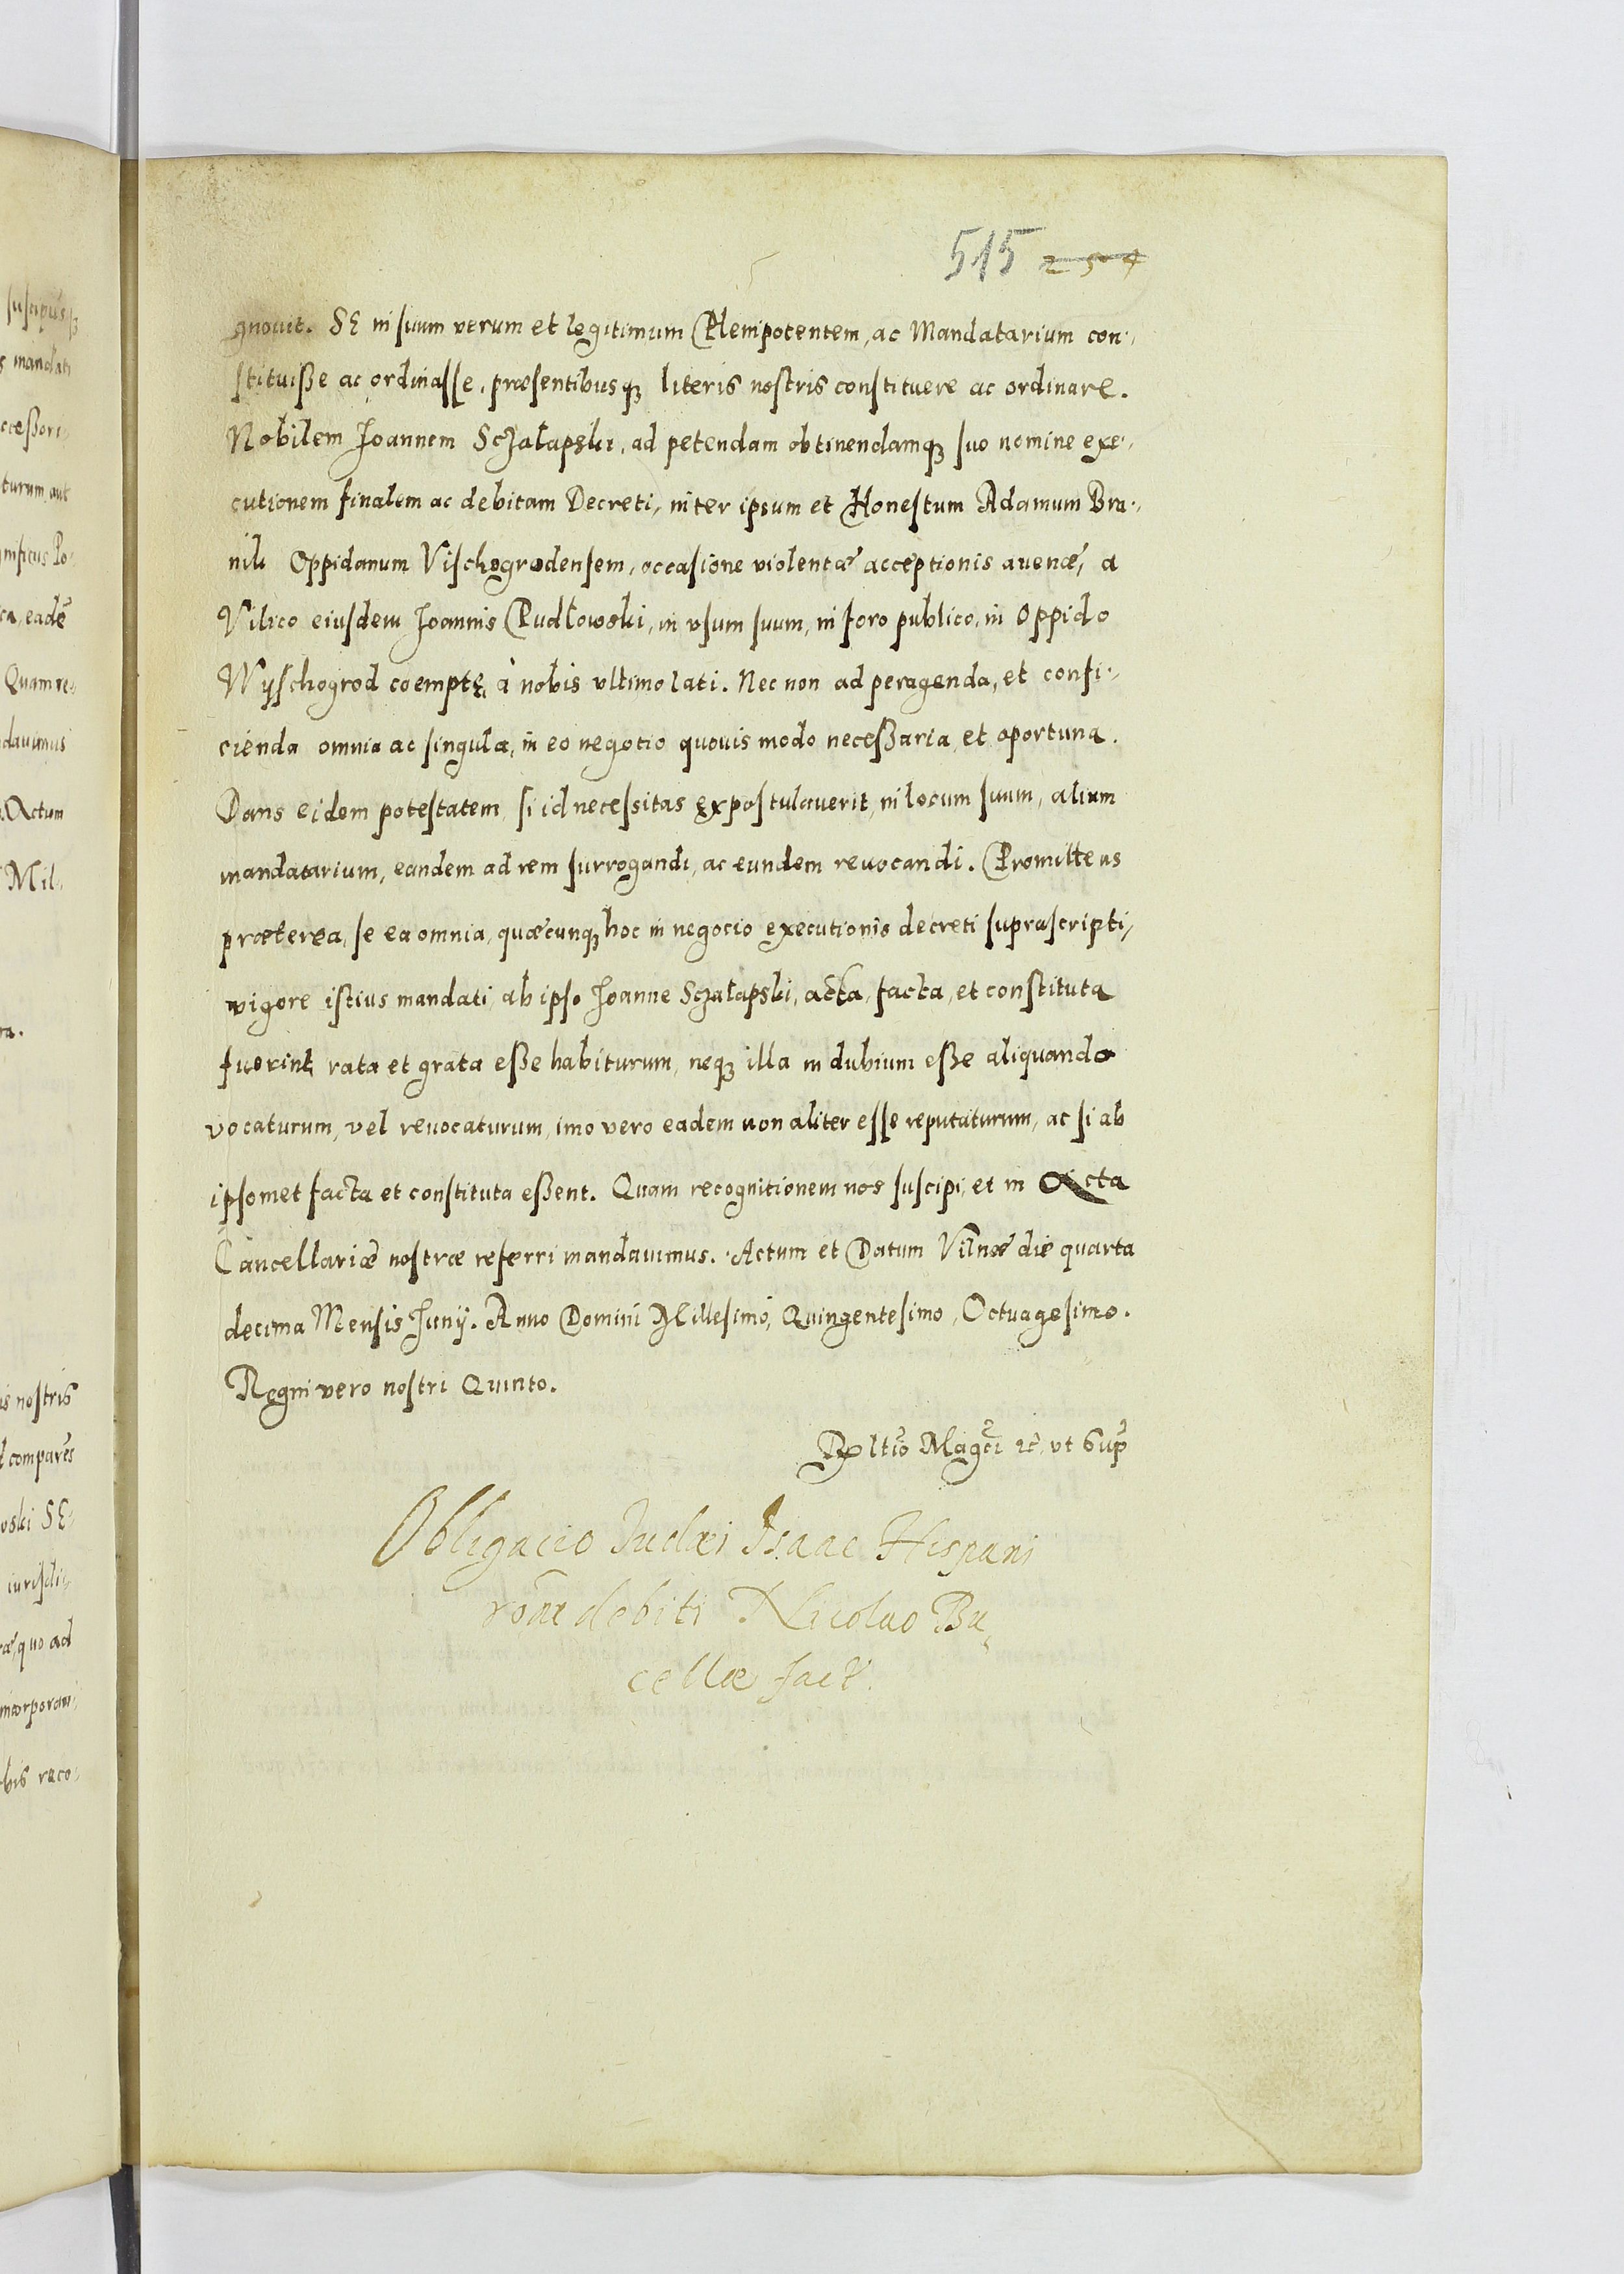 515 254
gnouit. SE in suum verum et legitimum Plenipotentem, ac Mandatarium con-
stituisse ac ordinasse, præsentibusq3 literis nostris constituere ac ordinare.
Nobilem Joannem Sczałapski, ad petendam obtinendamq3 suo nomine exe-
cutionem finalem ac debitam Decreti, inter ipsum et Honestum Adamum Bra-
nik Oppidanum Vischogrodensem, occasione violentæ acceptionis auenæ, a
Vilico eiusdem Joannis Pudłowski, in vsum suum, in foro publico, in Oppido
Wyschogrod coemptę, à nobis vltimo lati. Nec non ad peragenda, et confi-
cienda omnia ac singula, in eo negotio quouis modo necessaria et oportuna.
Dans eidem potestatem, si id necessitas expostulauerit, in locum suum, alium
mandatarium, eandem ad rem surrogandi, ac eundem reuocandi. Promittens
præterea, se ea omnia, quæcunq3 hoc in negocio executionis decreti suprascripti,
vigore istius mandati, ab ipso Joanne Sczałapski, acta, facta, et constituta
fuerint, rata et grata esse habiturum, neq3 illa in dubium esse aliquando
vocaturum, vel reuocaturum, imo vero eadem non aliter esse reputaturum, ac si ab
ipsomet facta et constituta essent. Quam recognitionem nos suscipi, et in Acta
Cancellariæ nostræ referri mandauimus. Actum et Datum Vilnæ die quarta
decima Mensis Junij. Anno Domini Millesimo, Quingentesimo, Octuagesimo.
Regni vero nostri Quinto.
Rltio Magci etc. vt Sup
Obligacio Judæi Isaac Hispani
rōne debiti Nicolao Bu
cellæ fact.
suscipi
mandati
ccessori
turum, aut
gnificus Po-
ca, eadē
Quam re-
dauimus
Actum
Mil-
ra.
is nostris
comparēs
wski SE
iurisdi-
quo ad
incorporaui
bis reco-